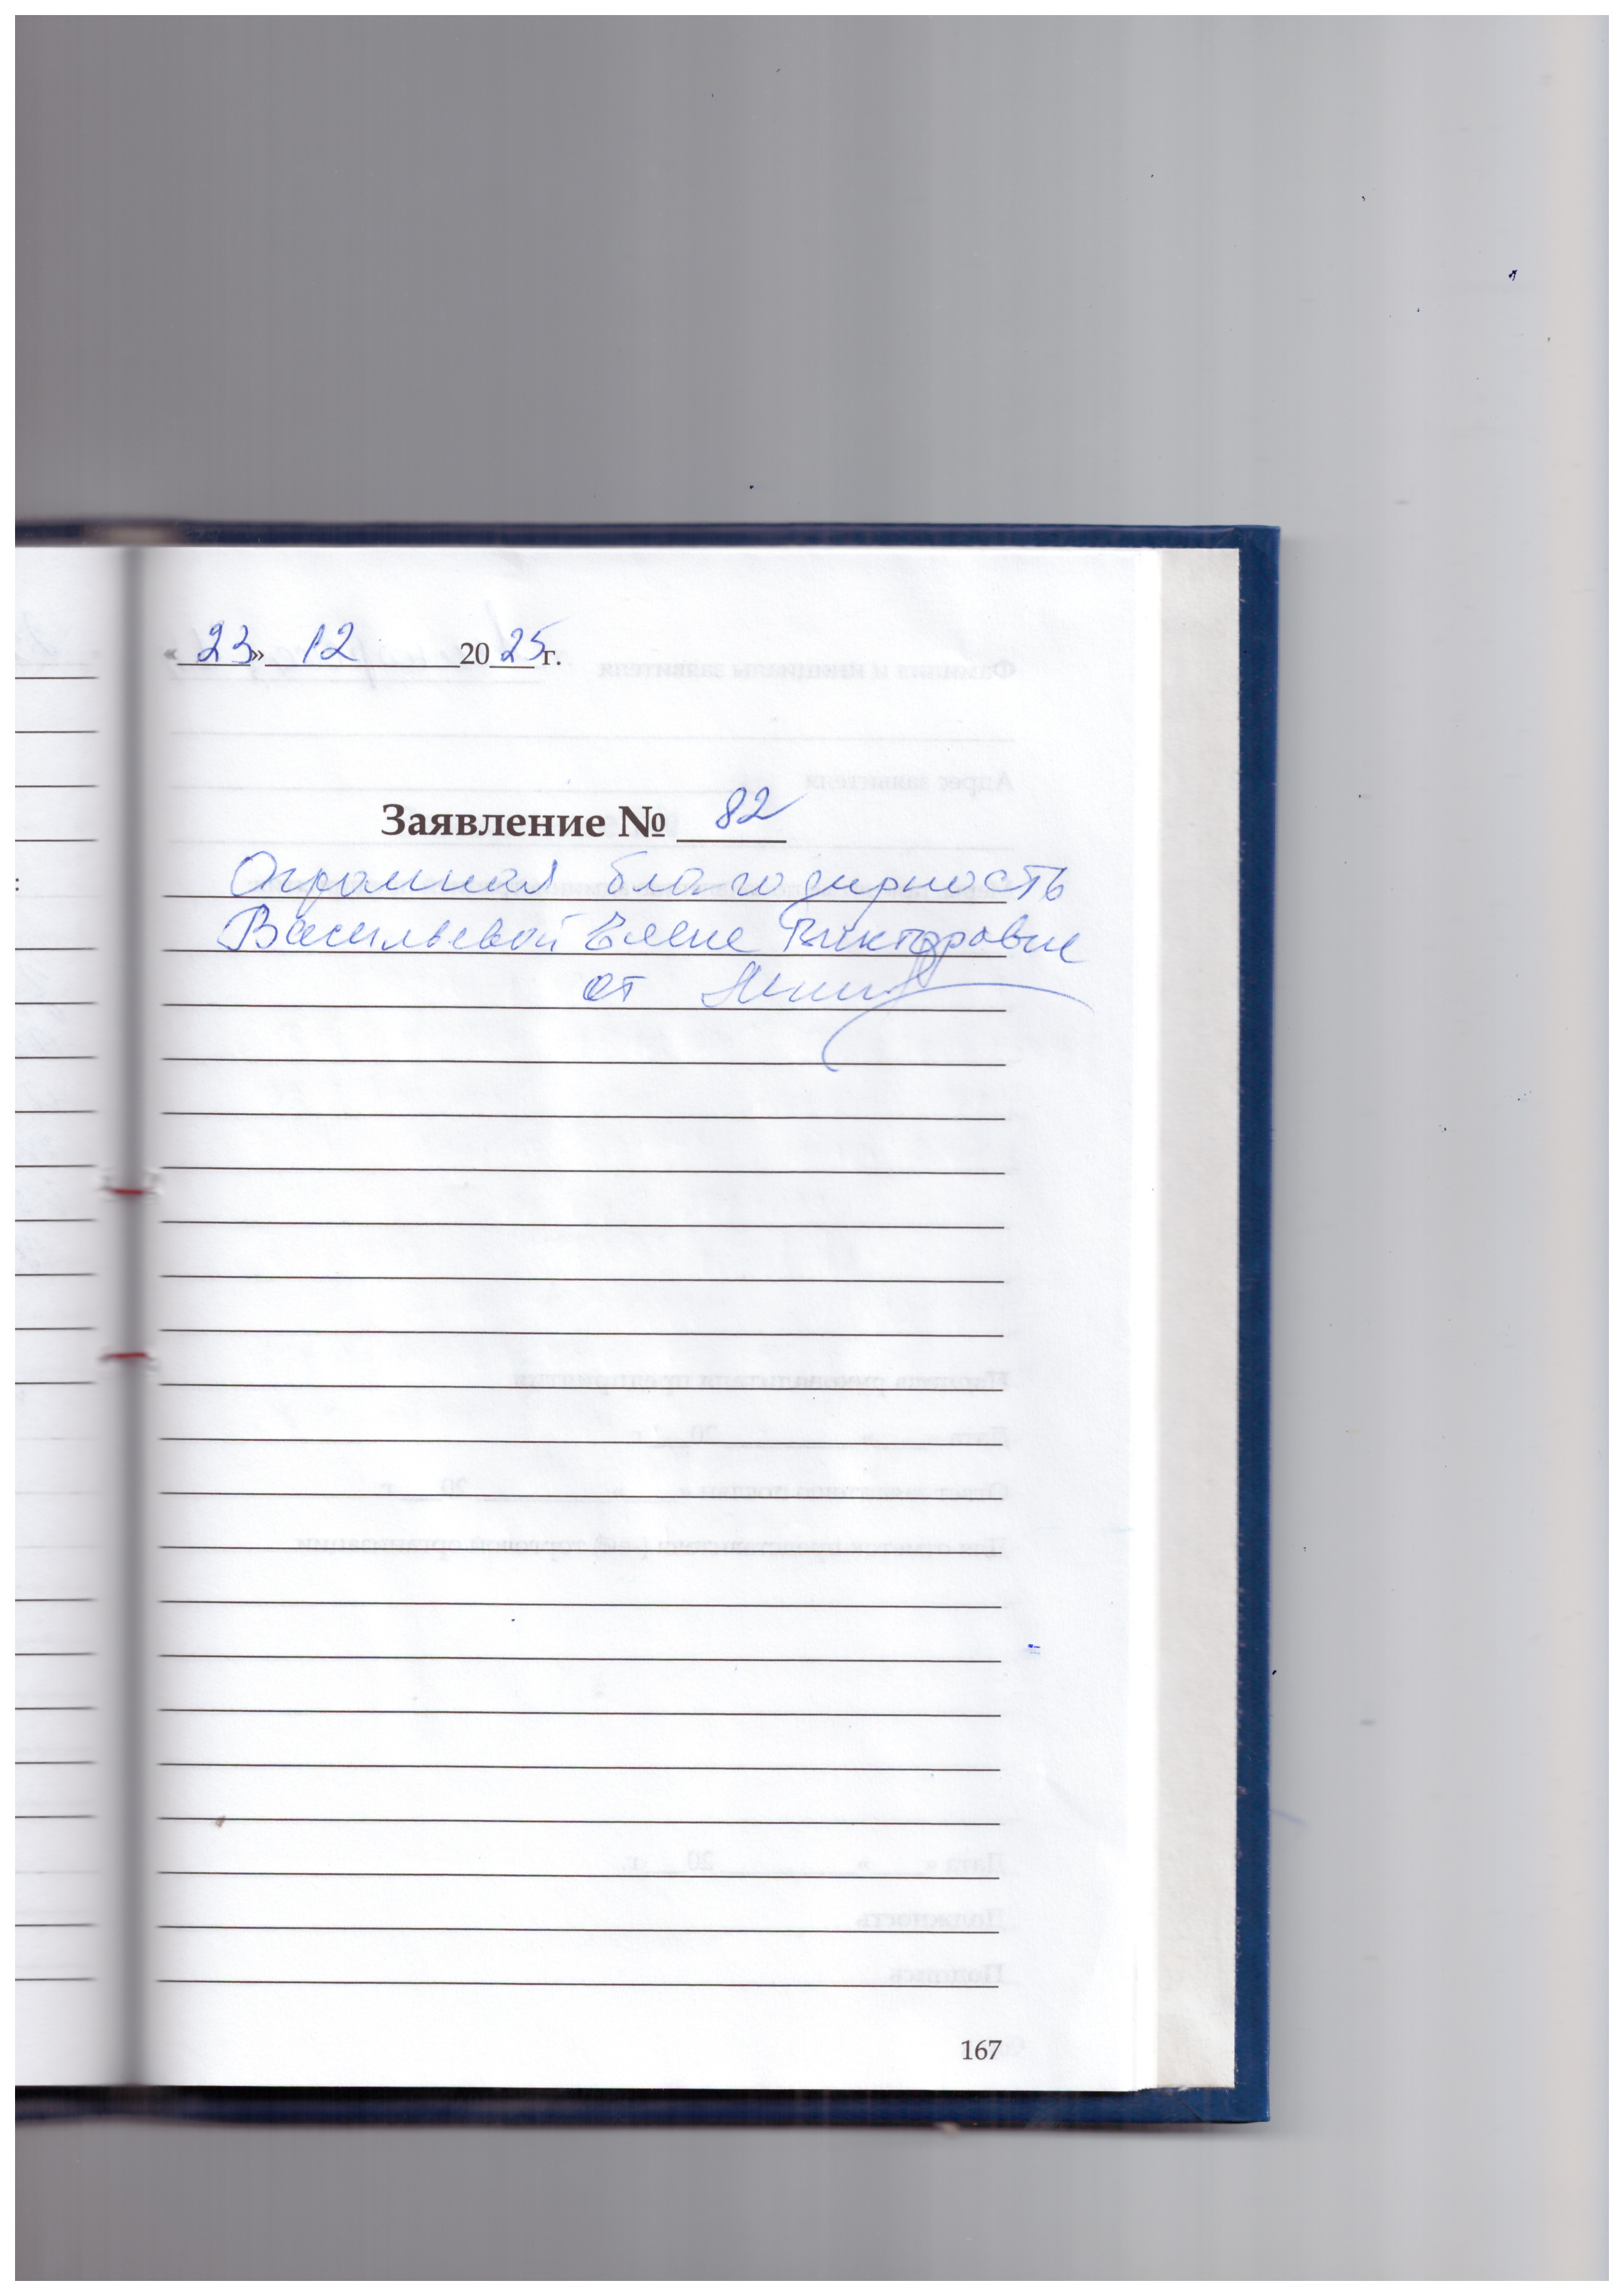 «23» 12 2025 г.
Заявление № 82
Огромная благодарность
Васильевой Елене Викторовне
от
167